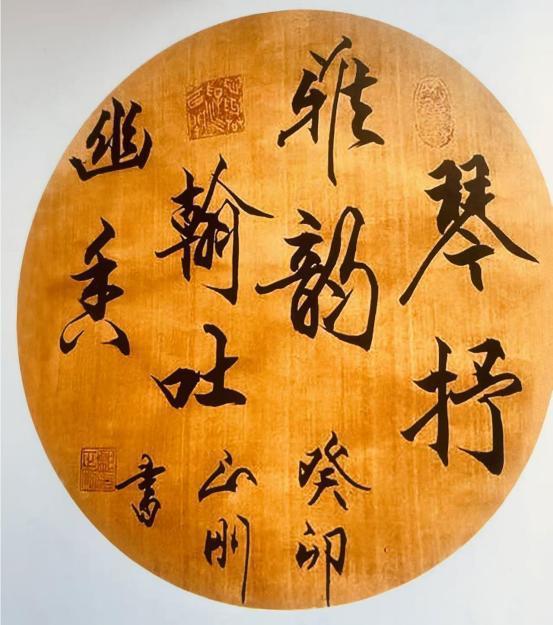 琴抒
雅韵
癸卯
翰吐
幽香
書